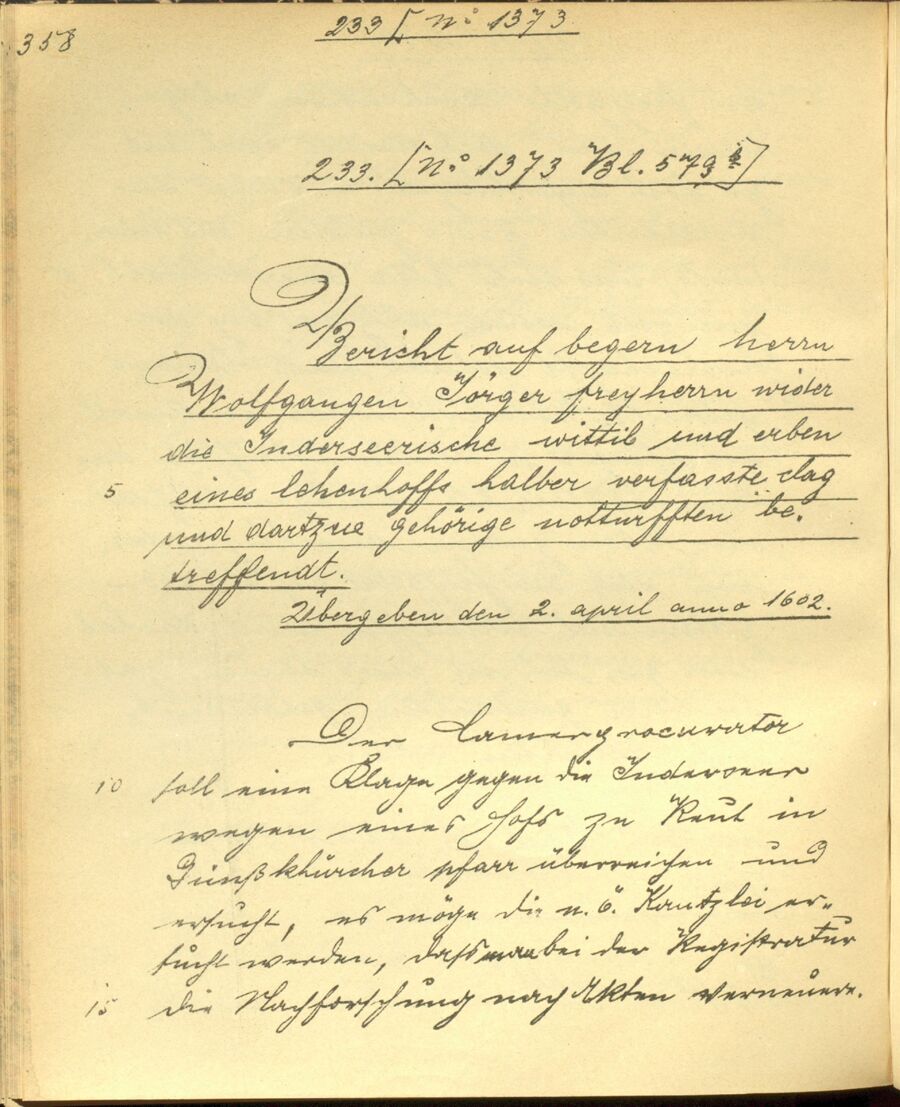 358
233 [ No 1373
233. [No 1373 Bl. 579 ]
Bericht auf begern herrn
Wolfgangen Jörger freyherrn wider
die Inderseerische wittib und erben
5 eines lehenhoffs halber verfasste clag
und dartzue gehörige notturfften be-
treffendt.
Übergeben den 2. april anno 1602.
Der Camerprocurator
10 soll eine Klage gegen die Inderseer
wegen eines Hofs zu Reut in
pfarr überreichen und
ersucht, es möge die n. ö. Kantzlei er-
sucht werden, dass man bei der Registratur
15 die Nachforschung nach Akten verneuere.